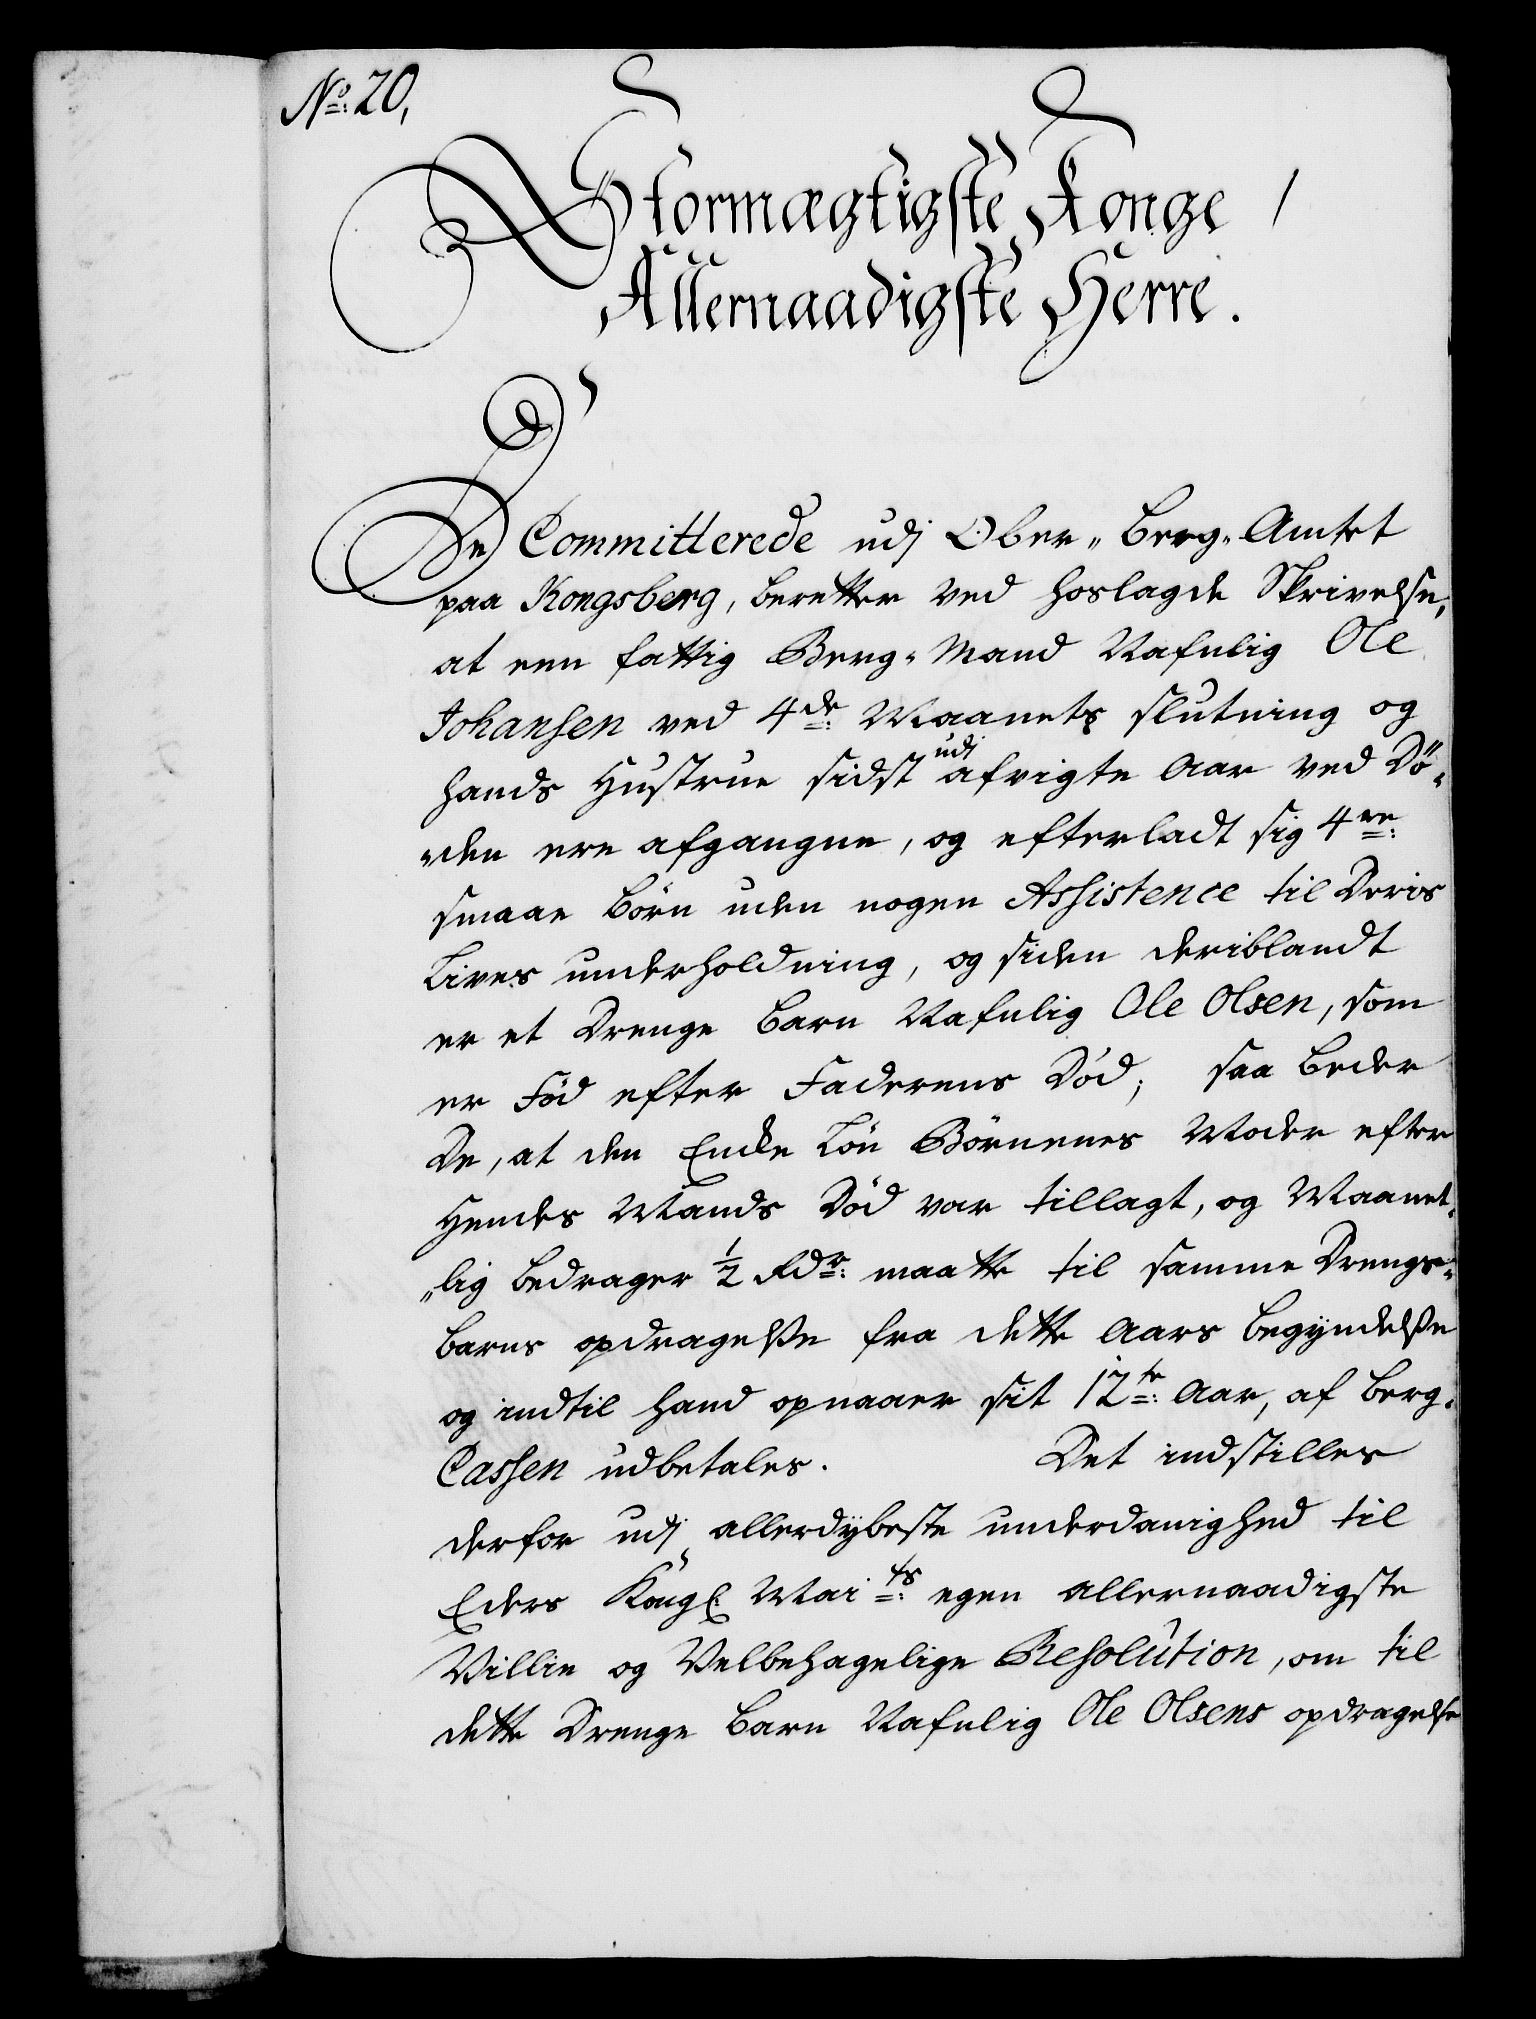 No: 20,
Stormægtigste Konge /
Allernaadigste Herre.
De Committerede udj Ober-Berg-Amtet
paa Kongsberg, beretter ved hoslagde Skrivelse,
at een fattig Berg-Mand Nafnlig Ole
Johansen ved 4de: Maanets slutning og
hands Hustrue sidst udj afvigte Aar ved Dö-
den ere afgangne, og efterladt sig 4re:
smaae Börn uden nogen Assistence til Deris
Lives underholdning, og siden deriblandt
er et Drenge Barn Nafnlig Ole Olsen, som
er Föd efter Faderens Död; saa beder
De, at den Encke Lön Börnenes Moder efter
Hendes Mands Död var tillagt, og Maanet-
lig bedrager ½ Rdr: maatte til samme Drenge-
barns opdragelße fra dette Aars begyndelße
og indtil hand opnaaer sit 12te: Aar, af Berg-
Cassen udbetales. Det indstilles
derfor udj allerdybeste underdanighed til
Eders Kongl: Maits: egen allernaadigste
Villie og Velbehagelige Resolution, om til
dette Drenge Barn Nafnlig Ole Olsens opdragelse